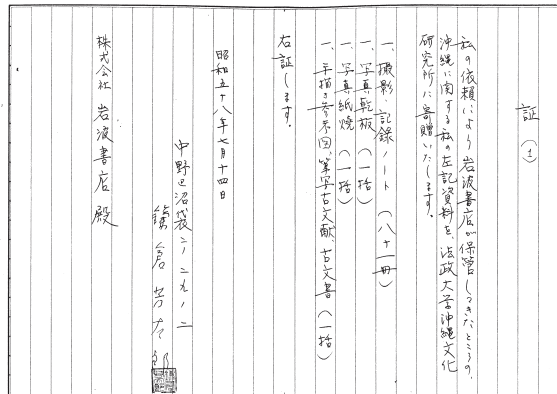 証(1)
私の依頼により岩波書店が保管してきたところの、
沖縄に関する私の左記資料を、法政大学沖縄文化
研究所に寄贈いたします。
一、撮影・記録ノート(八十一冊)
一、写真乾板(一括)
一、写真紙焼(一括)
一、手描き参考図、筆写古文献、古文書(一括)
右証します。
昭和五十八年七月十四日
中野区沼袋二ノ二九ノ二
鎌倉芳太郎
株式会社 岩波書店 殿